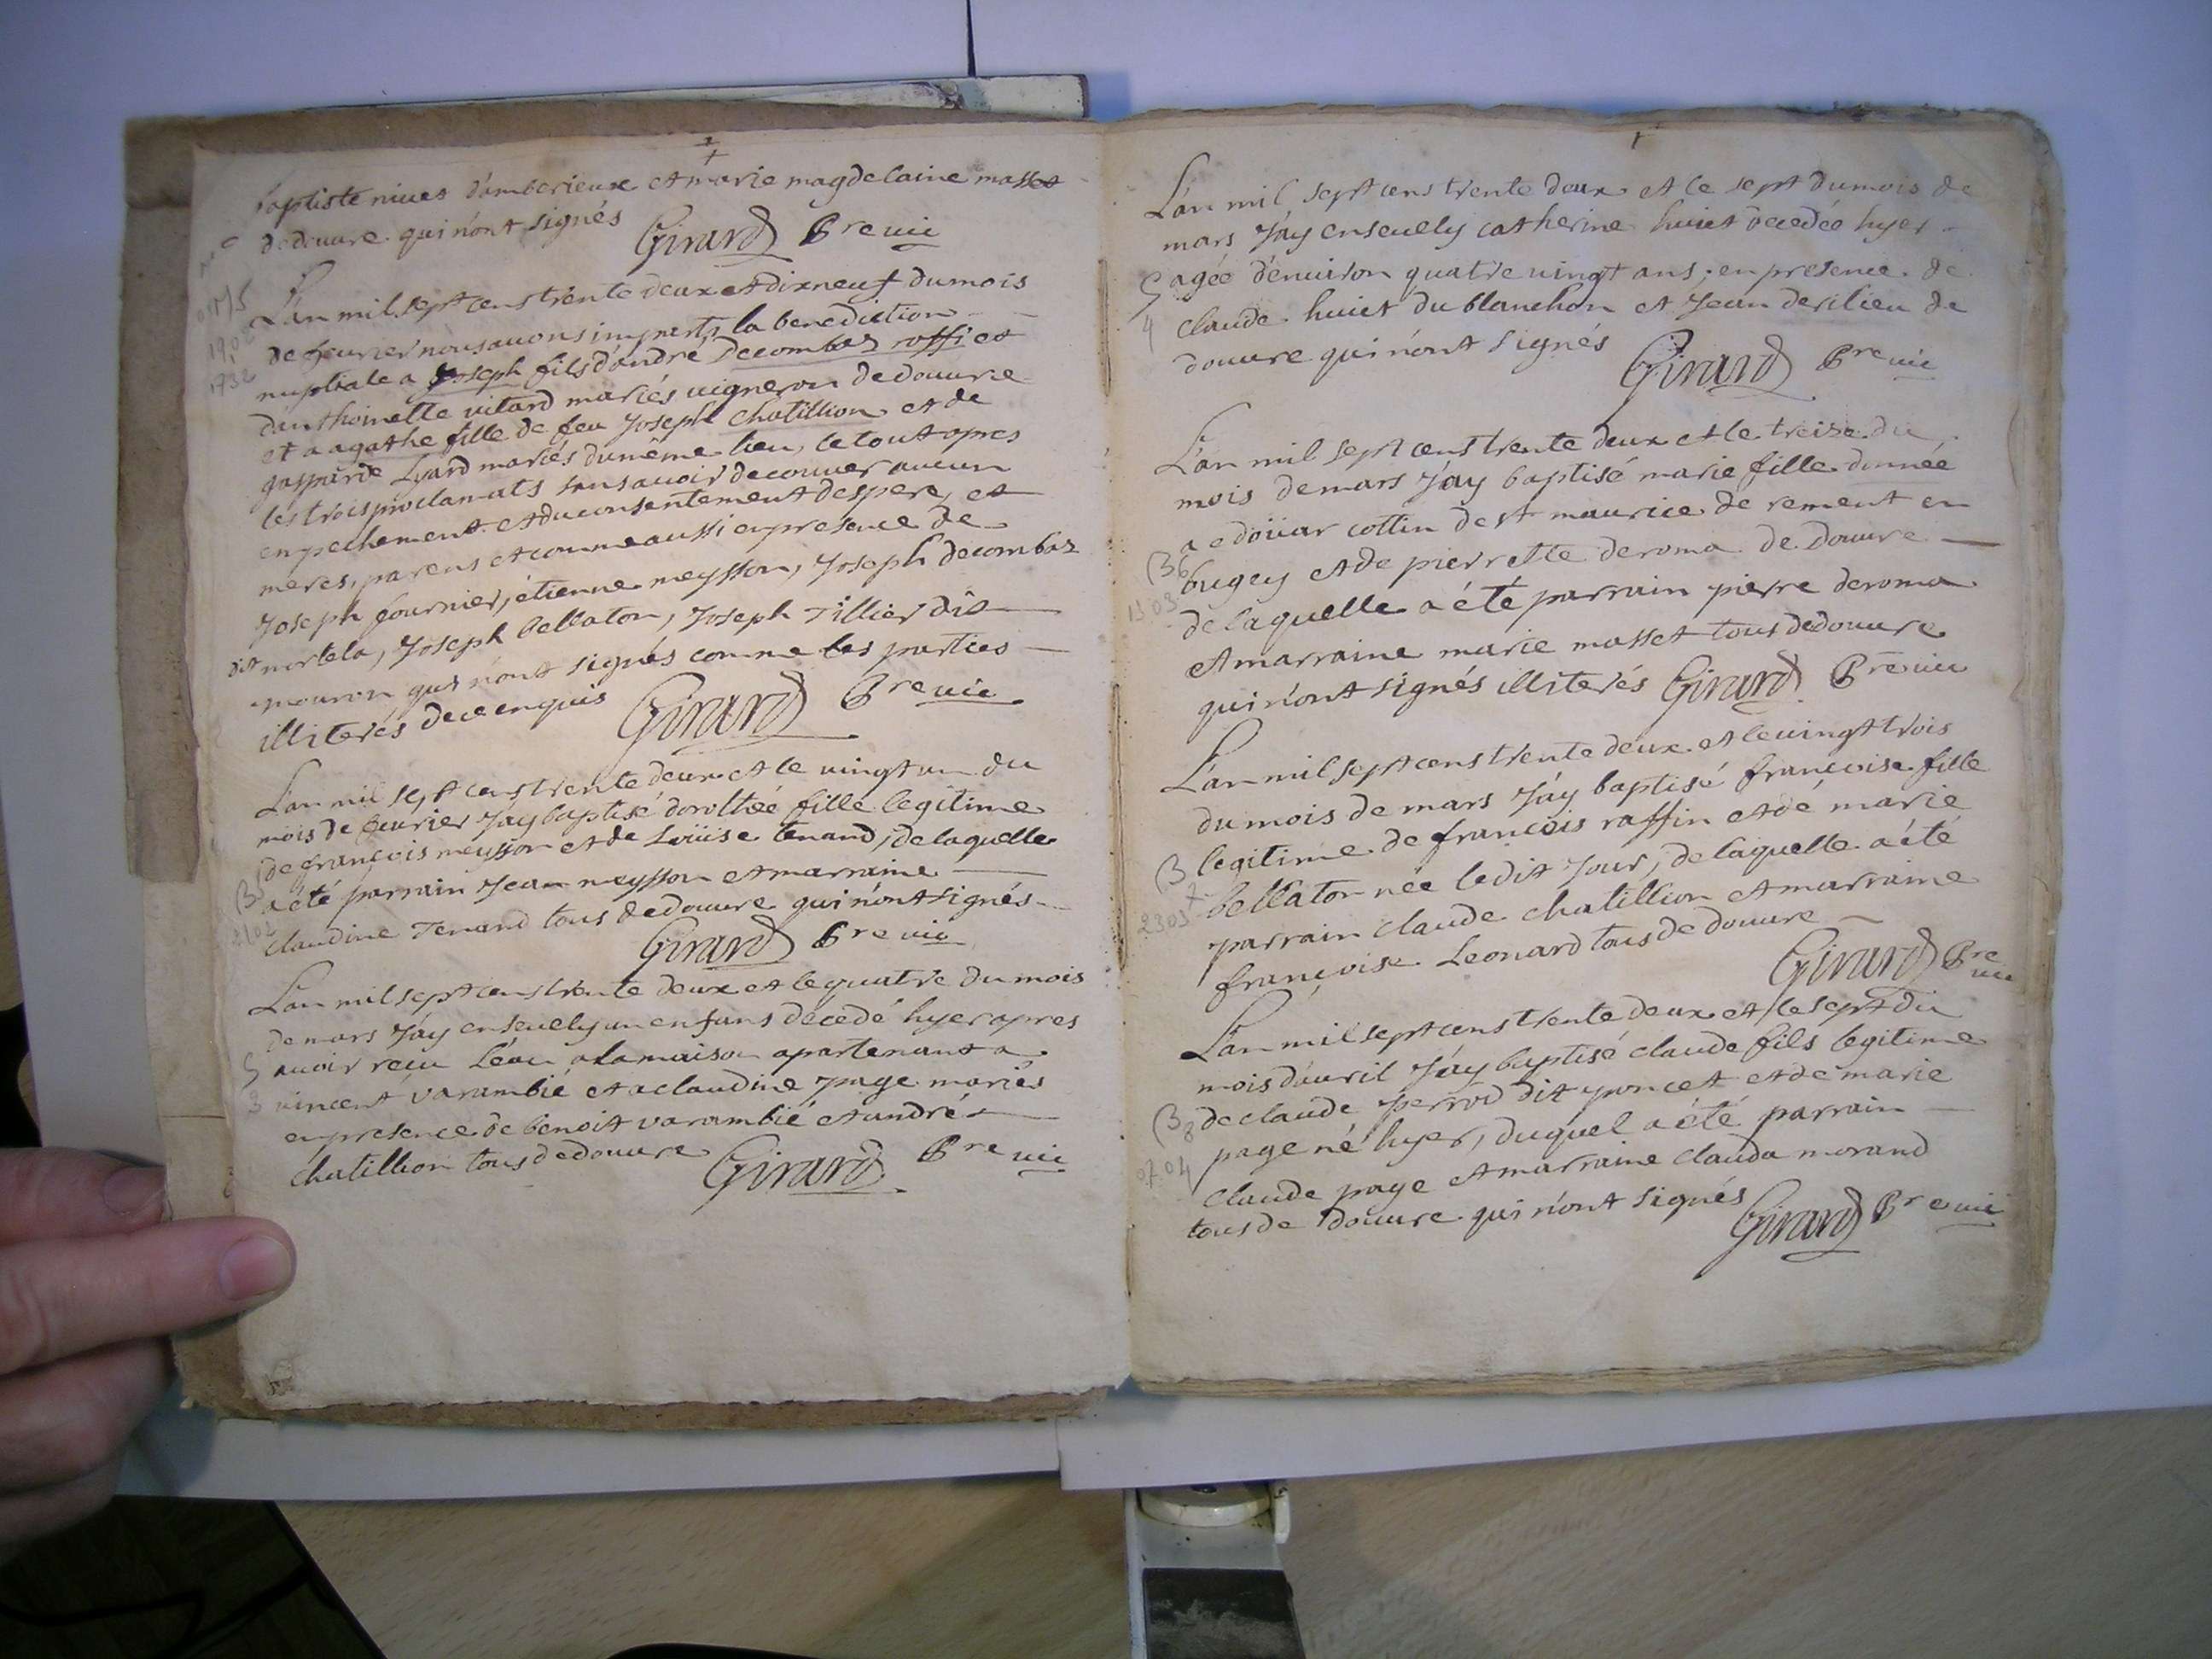 baptiste niuet d'amberieux et marie magdelaine masset
de douure qui n'ont signés Girard Bre uic
L'an mil sept cens trente deux et dixneuf du mois
de feurier nous auons imparti la benediction
nuptiale a Joseph fils d'andré decombaz roffi et
d'anthoinette uitard mariés uigneron de douure
et a agathe fille de feu Joseph chatillion et de
gasparde Lyard mariés du même lieu, le tout apres
les trois proclamats sans auoir decouuer aucun
empechement et du consentement des pere, et
meres, parens et comme aussi en presence de
Joseph fournier, étienne meysson, Joseph decombaz
dit mortela, Joseph bellaton, Joseph Tillier dit
mouron qui n'ont signés comme les parties
illiterés de ce enquis Girard Bre uic
L'an mil sept cens trente deux et le uingt un du
mois de feurier J'ay baptisé dorothée fille legitime
de françois meysson et de Loüise tenand, de laquelle
a été parrain Jean meysson et marraine
claudine Tenand tous de douure qui n'ont signés
Girard Bre uic
L'an mil sept cens trente deux et le quatre du mois
de mars J'ay enseuely un enfans décedé hyer apres
auoir reçu l'éau a la maison apartenant a
uincent varambié et a claudine page mariés
en presence de benoit varambié et andré
chatillion tous de douure Girard Bre uic
L'an mil sept cens trente deux et le sept du mois de
mars J'ay enseuely catherine huiet decedée hyer
agée d'enuiron quatre uingt ans, en presence de
claude huiet du blanchon et Jean derilieu de
douure qui n'ont signés Girard Bre uic
L'an mil sept cens trente deux et le treize du
mois de mars J'ay baptisé marie fille donnée
a edoüar cottin de st maurice de rement en
bugey et de pierrette deroma de douure
de laquelle a été parrain pierre deroma
et marraine marie masset tous de douure
qui n'ont signés illiterés Girard Bre uic
L'an mil sept cens trente deux et le uingt trois
du mois de mars J'ay baptisé françoise fille
legitime de françois raffin et de marie
bellaton née ledit Jour, de laquelle a été
parrain claude chatillion et marraine
françoise Leonard tous de douure
Girard Bre uic
L'an mil sept cens trente deux et le sept du
mois d'auril J'ay baptisé claude fils legitime
de claude perrod dit poncet et de marie
page né hyer, duquel a été parrain
claude page et marraine clauda morand
tous de douure qui n'ont signés
Girard Bre uic